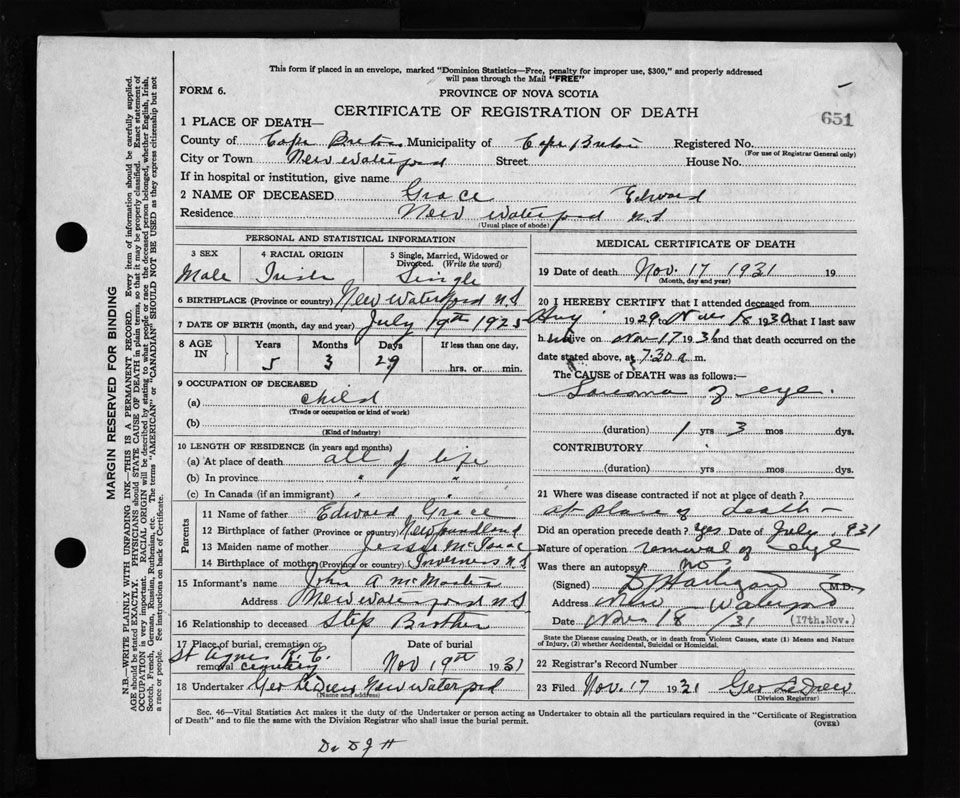 This form if placed in an envelope, marked "Dominion Statistics—Free, penalty for improper use, $300," and properly addressed
will pass through the Mail "FREE"
FORM 6.
PROVINCE OF NOVA SCOTIA
CERTIFICATE OF REGISTRATION OF DEATH
651
1 PLACE OF DEATH—
County of Cape Breton Municipality of Cape Breton Registered No.
(For use of Registrar General only)
City or Town New Waterford Street House No.
If in hospital or institution, give name
2 NAME OF DECEASED Grace Edward
Residence New Waterford N.S
(Usual place of abode)
PERSONAL AND STATISTICAL INFORMATION
3 SEX 4 RACIAL ORIGIN 5 Single, Married, Widowed or
Divorced. (Write the word)
Male Irish Single
6 BIRTHPLACE (Province or country) New Waterford N.S
7 DATE OF BIRTH (month, day and year) July 19th 1925
8 AGE IN Years Months Days If less than one day,
5 3 29 hrs. or min.
9 OCCUPATION OF DECEASED
(a) child
(Trade or occupation or kind of work)
(b)
(Kind of industry)
10 LENGTH OF RESIDENCE (in years and months)
(a) At place of death all of life
(b) In province " "
(c) In Canada (if an immigrant) " "
Parents
11 Name of father Edward Grace
12 Birthplace of father (Province or country) Newfoundland
13 Maiden name of mother Jessie McIsaac
14 Birthplace of mother (Province or country) Inverness N.S
15 Informant's name John A McMaster
Address New Waterford N.S
16 Relationship to deceased Step Brother
17 Place of burial, cremation or Date of burial
removal St Agnes R.C. cemetery Nov 19th 1931
18 Undertaker Geo LeDrew New Waterford
(Name and address)
MEDICAL CERTIFICATE OF DEATH
19 Date of death Nov. 17 1931 19
(Month, day and year)
20 I HEREBY CERTIFY that I attended deceased from
1929 to 1930 that I last saw
h alive on Nov 17 1931 and that death occurred on the
date stated above, at 7.30 a. m.
The CAUSE of DEATH was as follows:—
of eye.
(duration) 1 yrs 3 mos dys.
CONTRIBUTORY
(duration) yrs. mos. dys.
21 Where was disease contracted if not at place of death?
at place of death —
Did an operation precede death? Yes Date of July 931
Nature of operation removal of eye
Was there an autopsy? No
(Signed) M.D.
Address New Waterford
Date Nov 18 /31 (17th.Nov.)
State the Disease causing Death, or in death from Violent Causes, state (1) Means and Nature
of Injury, (2) whether Accidental, Suicidal or Homicidal.
22 Registrar's Record Number
23 Filed Nov. 17 1931 Geo LeDrew
(Division Registrar)
Sec. 46—Vital Statistics Act makes it the duty of the Undertaker or person acting as Undertaker to obtain all the particulars required in the "Certificate of Registration
of Death" and to file the same with the Division Registrar who shall issue the burial permit.
(OVER)
Dr D J H
MARGIN RESERVED FOR BINDING
N.B.—WRITE PLAINLY WITH UNFADING INK—THIS IS A PERMANENT RECORD. Every item of information should be carefully supplied.
AGE should be stated EXACTLY. PHYSICIANS should STATE CAUSE OF DEATH in plain terms, so that it may be properly classified. Exact statement of
OCCUPATION is very important. RACIAL ORIGIN will be described by stating to what people or race the deceased person belonged, whether English, Irish,
Scotch, French, German, Russian, Ruthenian, etc. The terms "AMERICAN" or "CANADIAN" SHOULD NOT BE USED as they express citizenship but not
a race or people. See instructions on back of Certificate.